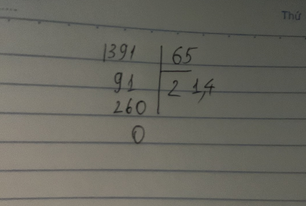 Thứ
1391 65
91 21,4
260
0